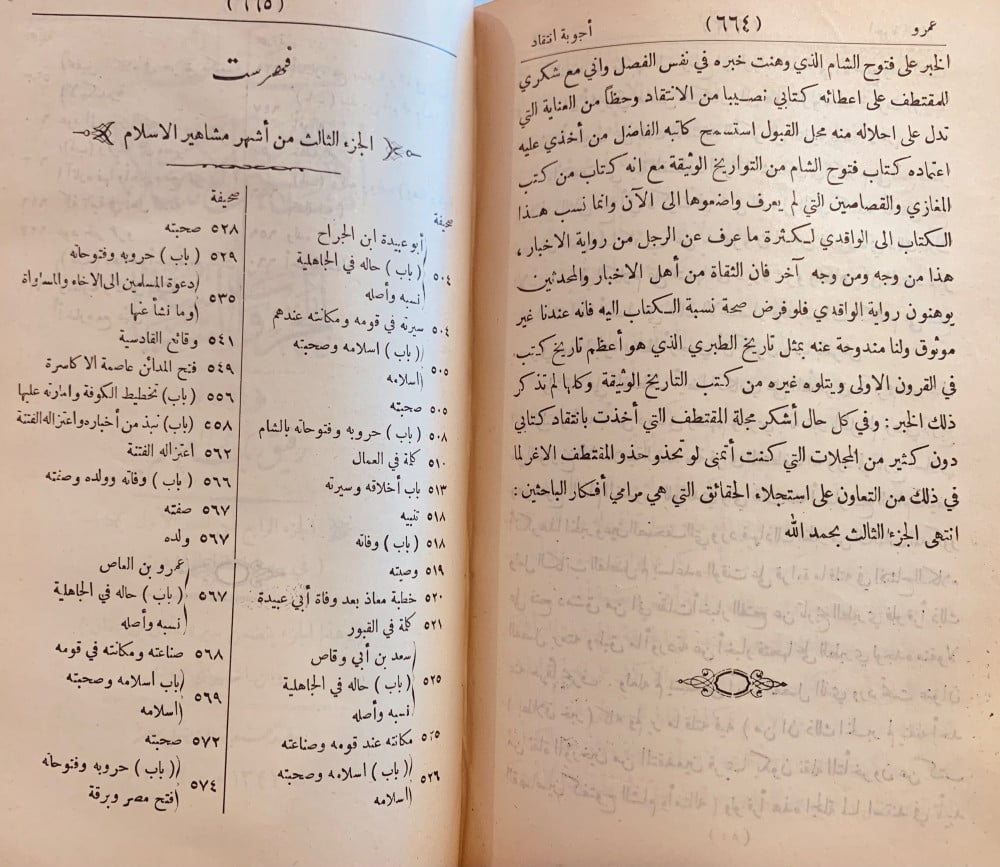 عمرو
(٦٦٤)
أجوبة انتقاد
الخبر على فتوح الشام الذي وهنت خبره في نفس الفصل واني مع شكري
للمقتطف على اعطائه كتابي نصيبا من الانتقاد وحظاً من العناية التي
تدل على احلاله منه محل القبول استسمح كاتبه الفاضل من أخذي عليه
اعتماده كتاب فتوح الشام من التواريخ الوثيقة مع انه كتاب من كتب
المغازي والقصاصين التي لم يعرف واضعوها الى الآن وانما نسب هذا
الكتاب الى الواقدي لكثرة ما عرف عن الرجل من رواية الاخبار ،
هذا من وجه ومن وجه آخر فان الثقاة من أهل الاخبار والمحدثين
يوهنون رواية الواقدي فلو فرض صحة نسبة الكتاب اليه فانه عندنا غير
موثوق ولنا مندوحة عنه بمثل تاريخ الطبري الذي هو أعظم تاريخ كتب
في القرون الاولى ويتلوه غيره من كتب التاريخ الوثيقة وكلها لم تذكر
ذلك الخبر : وفي كل حال أشكر مجلة المقتطف التي أخذت بانتقاد كتابي
دون كثير من المجلات التي كنت أتمنى لو تحذو حذو المقتطف الاغر لما
في ذلك من التعاون على استجلاء الحقائق التي هي مرامي أفكار الباحثين :
انتهى الجزء الثالث بحمد الله
(٦٦٥)
فهرست
الجزء الثالث من أشهر مشاهير الاسلام
صحيفة
أبو عبيدة ابن الجراح
٥٠٤ (باب) حاله في الجاهلية
نسبه وأصله
٥٠٤ سيرته في قومه ومكانته عندهم
٥٠٥ (باب) اسلامه وصحبته
اسلامه
٥٠٥ صحبته
٥٠٨ (باب) حروبه وفتوحاته بالشام
٥١٠ كلمة في العمال
٥١٣ باب أخلاقه وسيرته
٥١٨ تنبيه
٥١٨ (باب) وفاته
٥١٩ وصيته
٥٢٠ خطبة معاذ بعد وفاة أبي عبيدة
٥٢١ كلمة في القبور
سعد بن أبي وقاص
٥٢٥ (باب) حاله في الجاهلية
نسبه وأصله
٥٢٥ مكانته عند قومه وصناعته
٥٢٦ (باب) اسلامه وصحبته
اسلامه
صحيفة
٥٢٨ صحبته
٥٢٩ (باب) حروبه وفتوحاته
٥٣٥ دعوة المسلمين الى الاخاء والمساواة
وما نشأ عنها
٥٤١ وقائع القادسية
٥٤٩ فتح المدائن عاصمة الاكاسرة
٥٥٦ (باب) تخطيط الكوفة وامارته عليها
٥٥٨ (باب) نبذ من أخباره واعتزاله الفتنة
٥٦٢ اعتزاله الفتنة
٥٦٦ (باب) وفاته وولده وصفته
٥٦٧ صفته
٥٦٧ ولده
عمرو بن العاص
٥٦٧ (باب) حاله في الجاهلية
نسبه وأصله
٥٦٨ صناعته ومكانته في قومه
٥٦٩ باب اسلامه وصحبته
اسلامه
٥٧٢ صحبته
٥٧٤ (باب) حروبه وفتوحاته
فتح مصر وبرقة